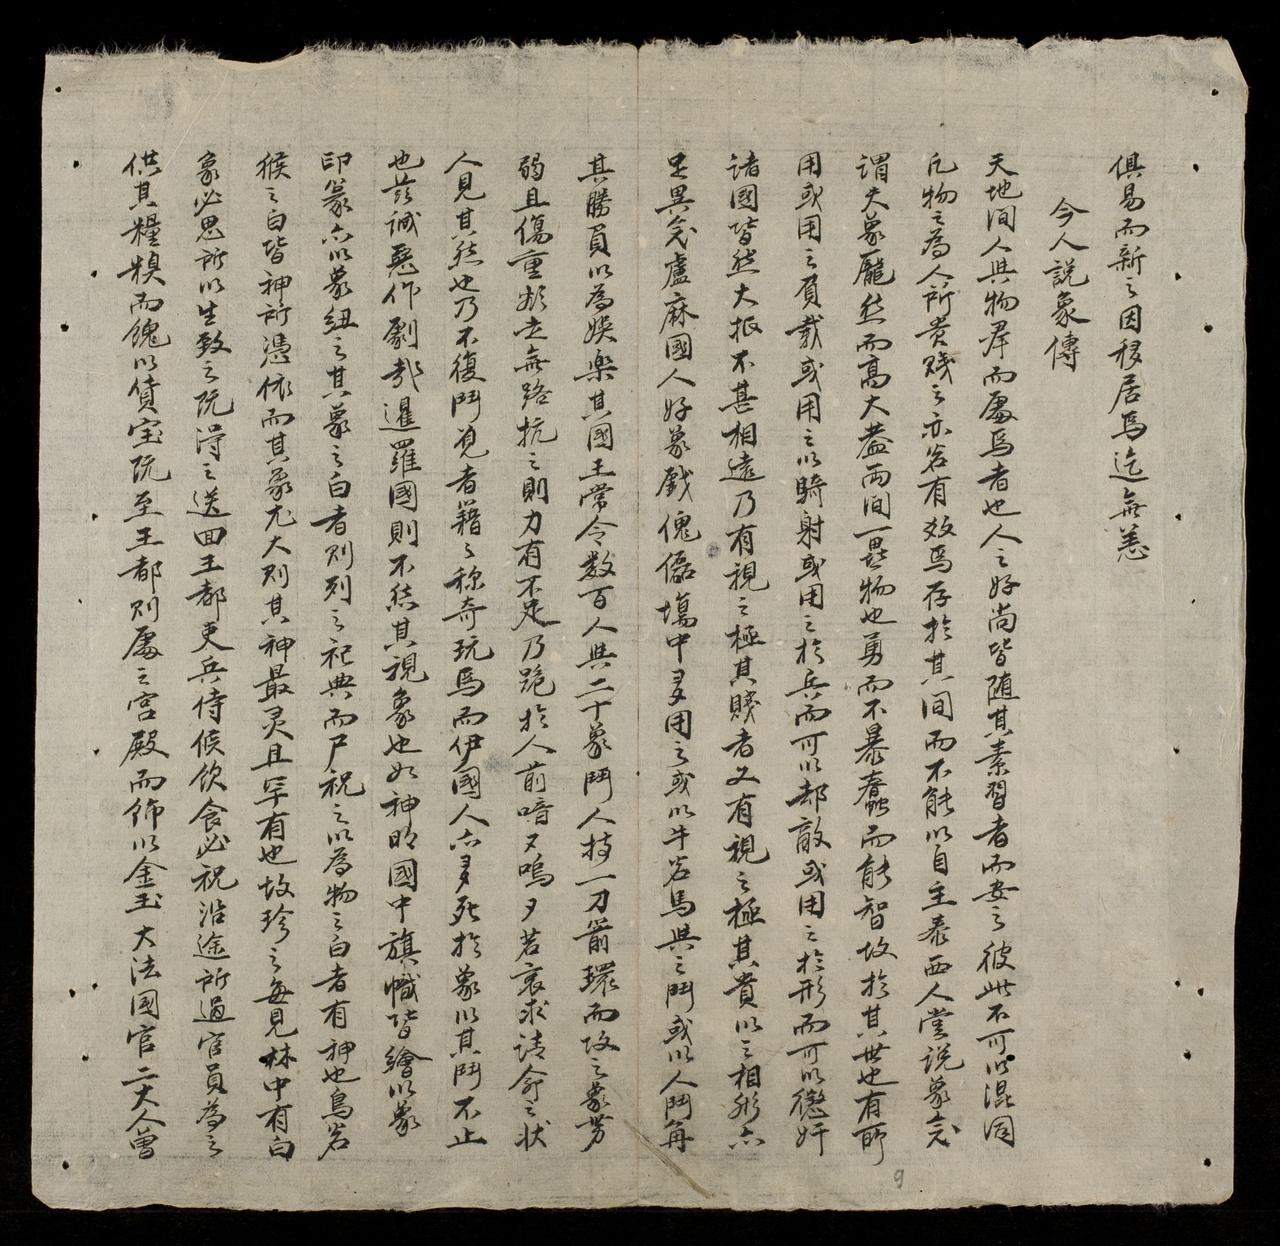 俱易而新之因移居焉迄無恙
今人説象傳
天地间人與物群而處焉者也人之好尚皆随其素習者而安之彼此不可以混同
凡物之為人所貴賤之亦各有效焉存於其间而不能以自主泰西人嘗説象
謂夫象龐然而高大蓋两间一異物也勇而不暴蠢而能智故於其世也有所
用或用之負載或用之以騎射或用之於兵而可以却敵或用之於形而可以懲奸
諸國皆然大抵不甚相遠乃有視之極其賤者又有視之極其貴以之相形亦
足異盧麻國人好象戲傀儡塲中多用之或以牛若馬與之鬥或以人鬥角
其勝負以為娛樂其國王常令数百人與二十象鬥人持一刀箭環而攻之象勞
弱且傷重於走無路抗之則力有不足乃跪於人前喑又嗚夕若哀求請命之状
人見其然也乃不復鬥見者籍之称奇玩焉而伊國人亦多死於象以其鬥不止
也玆誠惡作劇哉暹羅國則不然其視象也如神明國中旗幟皆繪以象
印篆亦以象紐之其象之白者則列之祀典而尸祝之以為物之白者有神也鳥若
猴之白皆神所憑依而其象尤大則其神最灵且罕有也故珍之每見林中有白
象必思所以生致之既得之送回王都吏兵侍候飲食必祝沿途所過官員為之
供其糧糗而餽以債宝既至王都則處之宮殿而飾以金玉大法国官二大人曾
9